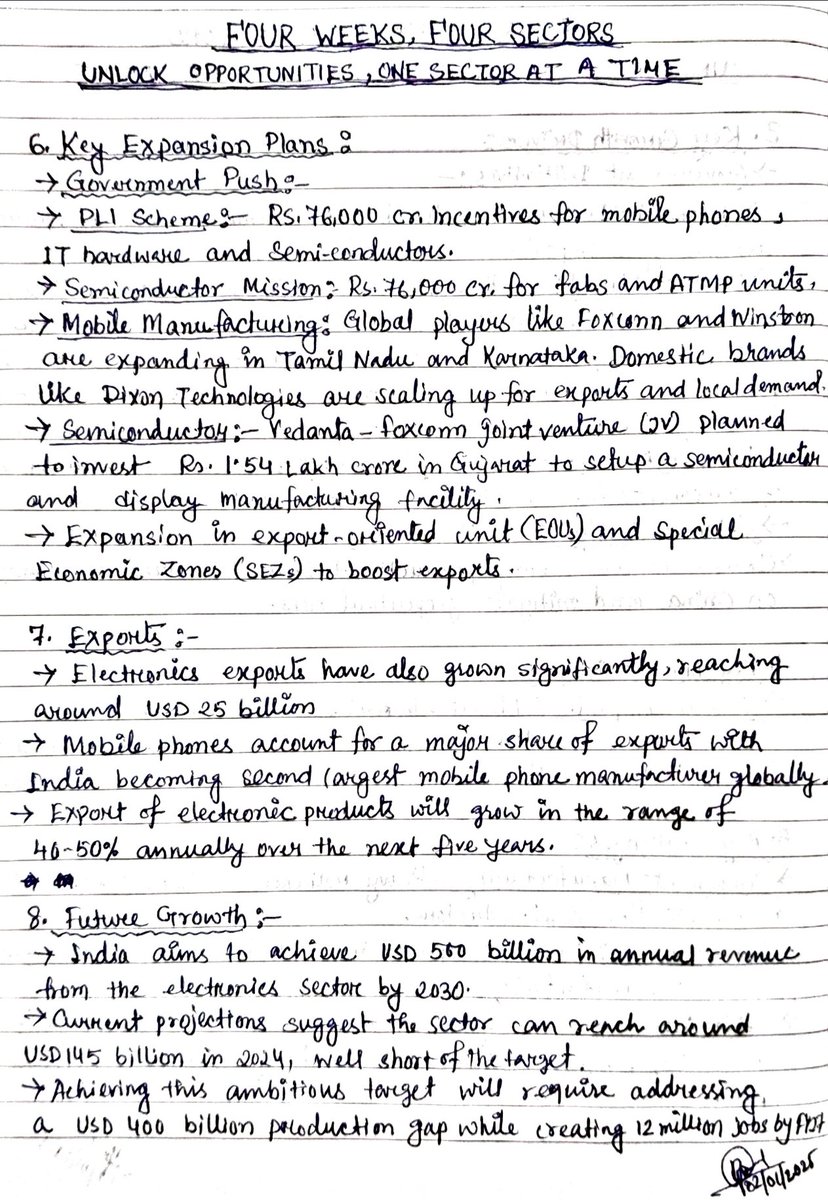 FOUR WEEKS, FOUR SECTORS
UNLOCK OPPORTUNITIES, ONE SECTOR AT A TIME
6. Key Expansion Plans :
→ Government Push :-
→ PLI Scheme :- RS. 76,000 cr. Incentives for mobile phones,
IT hardware and Semi-conductors.
→ Semiconductor Mission :- Rs. 76,000 cr. for fabs and ATMP units.
→ Mobile Manufacturing : Global players like Foxconn and Winstron
are expanding in Tamil Nadu and Karnataka. Domestic brands
like Dixon Technologies are scaling up for exports and local demand.
→ Semiconductor :- Vedanta - foxconn joint venture (JV) planned
to invest Rs. 1.54 Lakh crore in Gujarat to setup a semiconductor
and display manufacturing facility.
→ Expansion in export-oriented unit (EOUs) and Special
Economic Zones (SEZs) to boost exports.
7. Exports :-
→ Electronics exports have also grown significantly, reaching
around USD 25 billion
→ Mobile phones account for a major share of exports with
India becoming second largest mobile phone manufacturer globally.
→ Export of electronic products will grow in the range of
40-50% annually over the next five years.
8. Future Growth :-
→ India aims to achieve USD 500 billion in annual revenue
from the electronics sector by 2030.
→ Current projections suggest the sector can reach around
USD 145 billion in 2024, well short of the target.
→ Achieving this ambitious target will require addressing
a USD 400 billion production gap while creating 12 million jobs by
02/01/2025